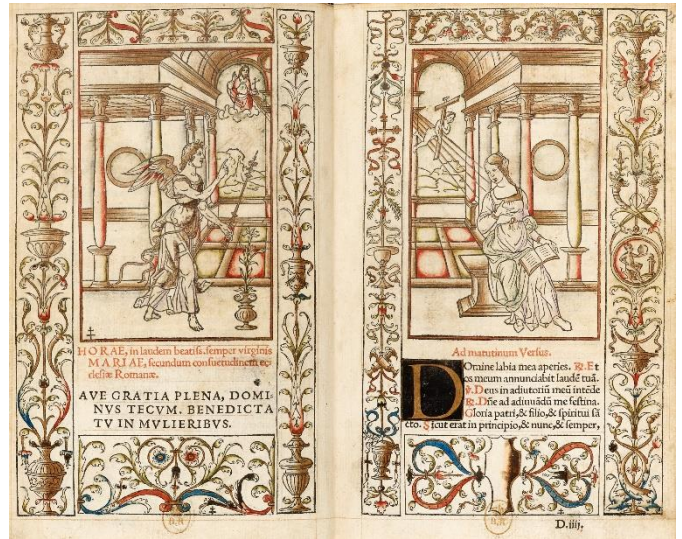 HORAE, in laudem beatiſs. ſemper virginis
MARIAE, ſecundum conſuetudinem ec
cleſiæ Romanæ.
AVE GRATIA PLENA, DOMI-
NVS TECVM. BENEDICTA
TV IN MVLIERIBVS.
Ad matutinum Verſus.
DOmine labia mea aperies. ℞. Et
os meum annunciabit laudē tuā.
℣. Deus in adiutoriū meū intēde
℞. Dñe ad adiuuādū me feſtina.
Gloria patri, & filio, & ſpiritui ſā
cto. Sicut erat in principio, & nunc, & ſemper,
D.iiij.